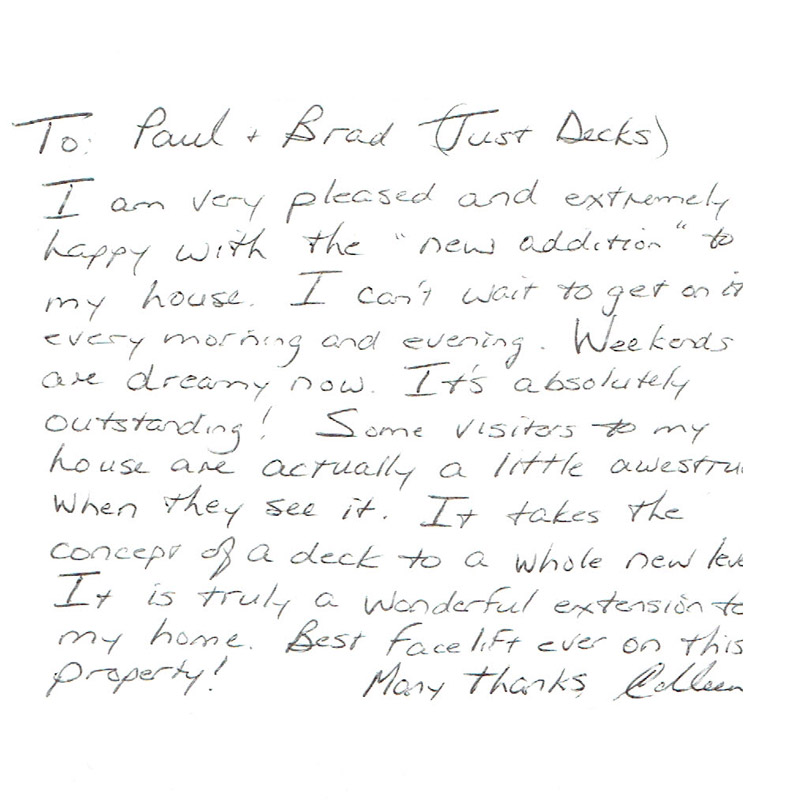 To: Paul + Brad (Just Decks)
I am very pleased and extremely
happy with the "new addition" to
my house. I can't wait to get on it
every morning and evening. Weekends
are dreamy now. It's absolutely
outstanding! Some visitors to my
house are actually a little awestru
when they see it. It takes the
concept of a deck to a whole new leve
It is truly a wonderful extension to
my home. Best facelift ever on this
property! Many thanks Colleen